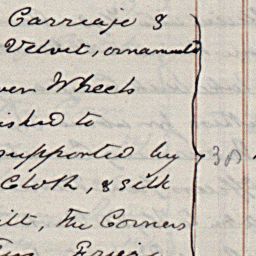 Carriage &
Velvet, ornaments
ven Wheels
ished to
supported by
Cloth, & Silk
ilt, The Corners